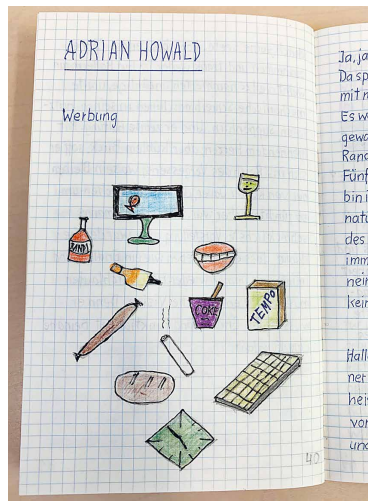 ADRIAN HOWALD
Werbung
COKE
TEMPO
40
Ja, ja
Da sp
mit m
Es w
gewa
Rand
Fünf
bin i
natu
des
imm
nein
kein
Hall
net
hei
vor
und